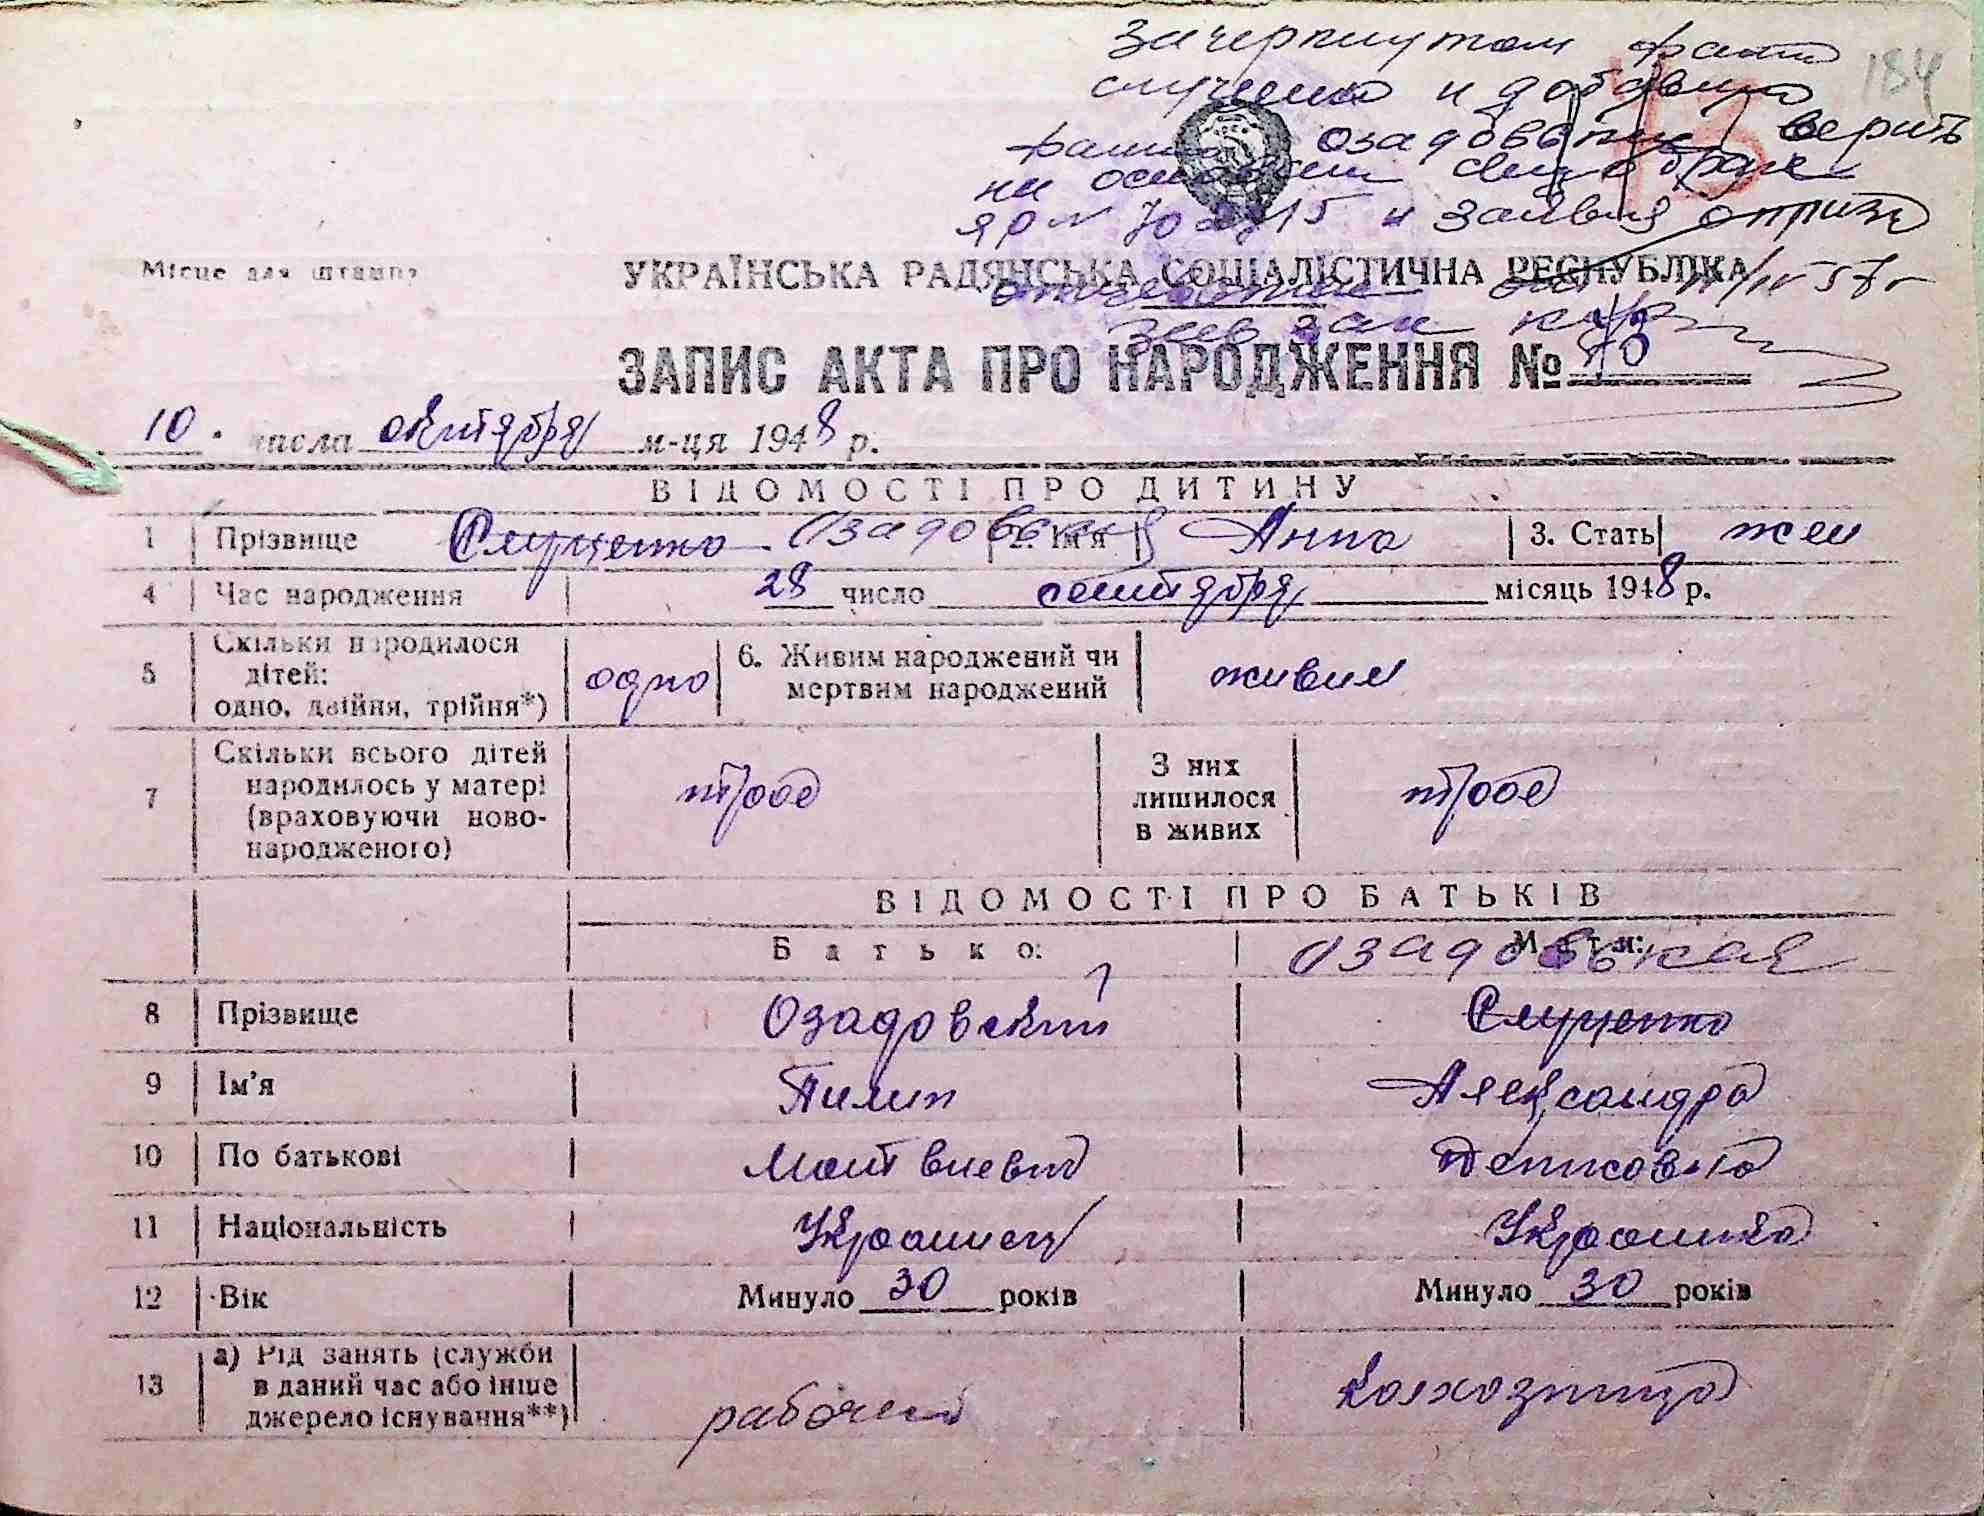 зачеркнутом фами 184
слученко и добавлено
фами озадовская верить
на основании свид о браке
яр № 70 и заявл
УКРАЇНСЬКА РАДЯНСЬКА СОЦІАЛІСТИЧНА РЕСПУБЛІКА
Місце для штампа
зав заг
ЗАПИС АКТА ПРО НАРОДЖЕННЯ №
10 числа октября м-ця 1948 р.
ВІДОМОСТІ ПРО ДИТИНУ
1 Прізвище Слученко Озадовская 2. Ім'я Анна 3. Стать жен
4 Час народження 28 число сентября місяць 1948 р.
5 Скільки народилося дітей: одно, двійня, трійня*) одно 6. Живим народжений чи мертвим народжений живим
7 Скільки всього дітей народилось у матері (враховуючи ново-народженого) трое З них лишилося в живих трое
ВІДОМОСТІ ПРО БАТЬКІВ
Батько: Мати: Озадовская
8 Прізвище Озадовский Слученко
9 Ім'я Пилип Александра
10 По батькові Матвиевич Денисовна
11 Національність Украинец Украинка
12 Вік Минуло 30 років Минуло 30 років
13 а) Рід занять (служби в даний час або інше джерело існування**) рабочий колхозница